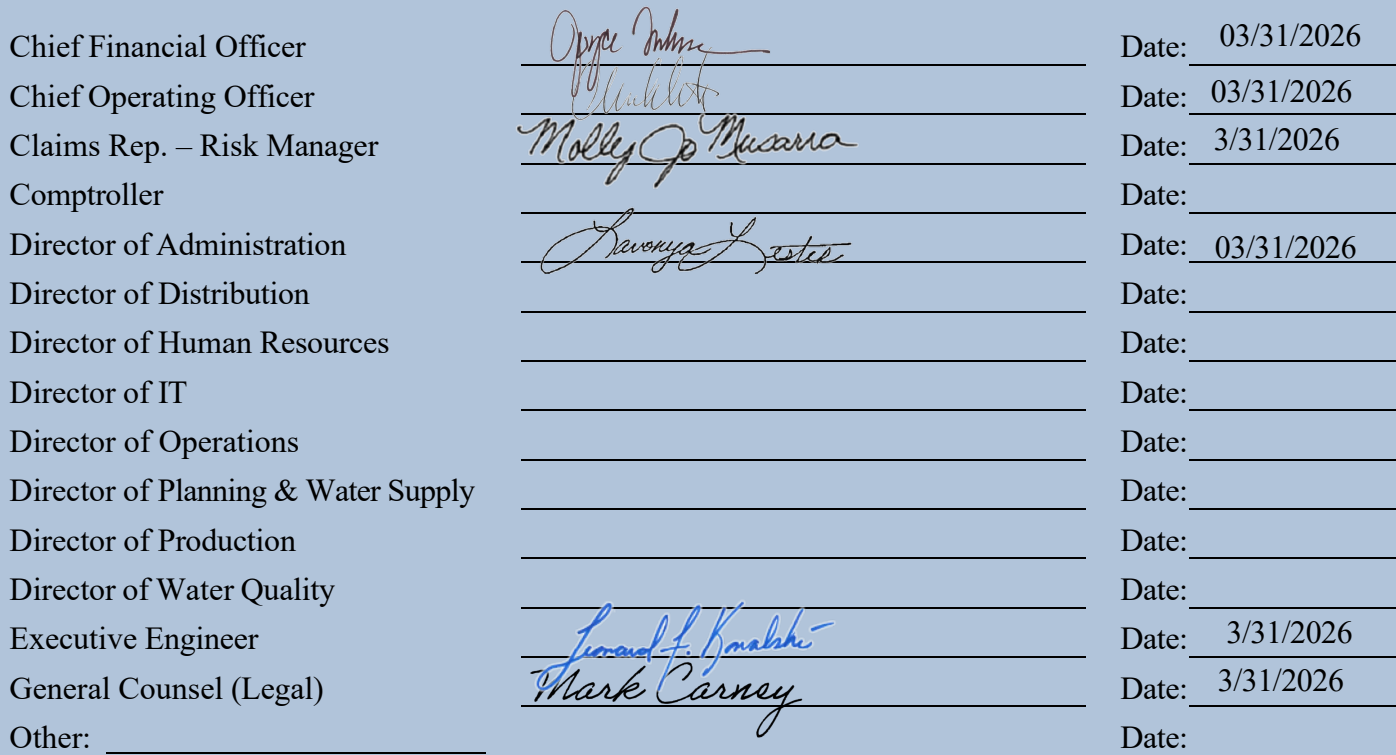 Chief Financial Officer Date: 03/31/2026
Chief Operating Officer Date: 03/31/2026
Claims Rep. – Risk Manager Molly Jo Musarra Date: 3/31/2026
Comptroller Date:
Director of Administration Lavonya Lester Date: 03/31/2026
Director of Distribution Date:
Director of Human Resources Date:
Director of IT Date:
Director of Operations Date:
Director of Planning & Water Supply Date:
Director of Production Date:
Director of Water Quality Date:
Executive Engineer Leonard F. Kowalski Date: 3/31/2026
General Counsel (Legal) Mark Carney Date: 3/31/2026
Other: Date: